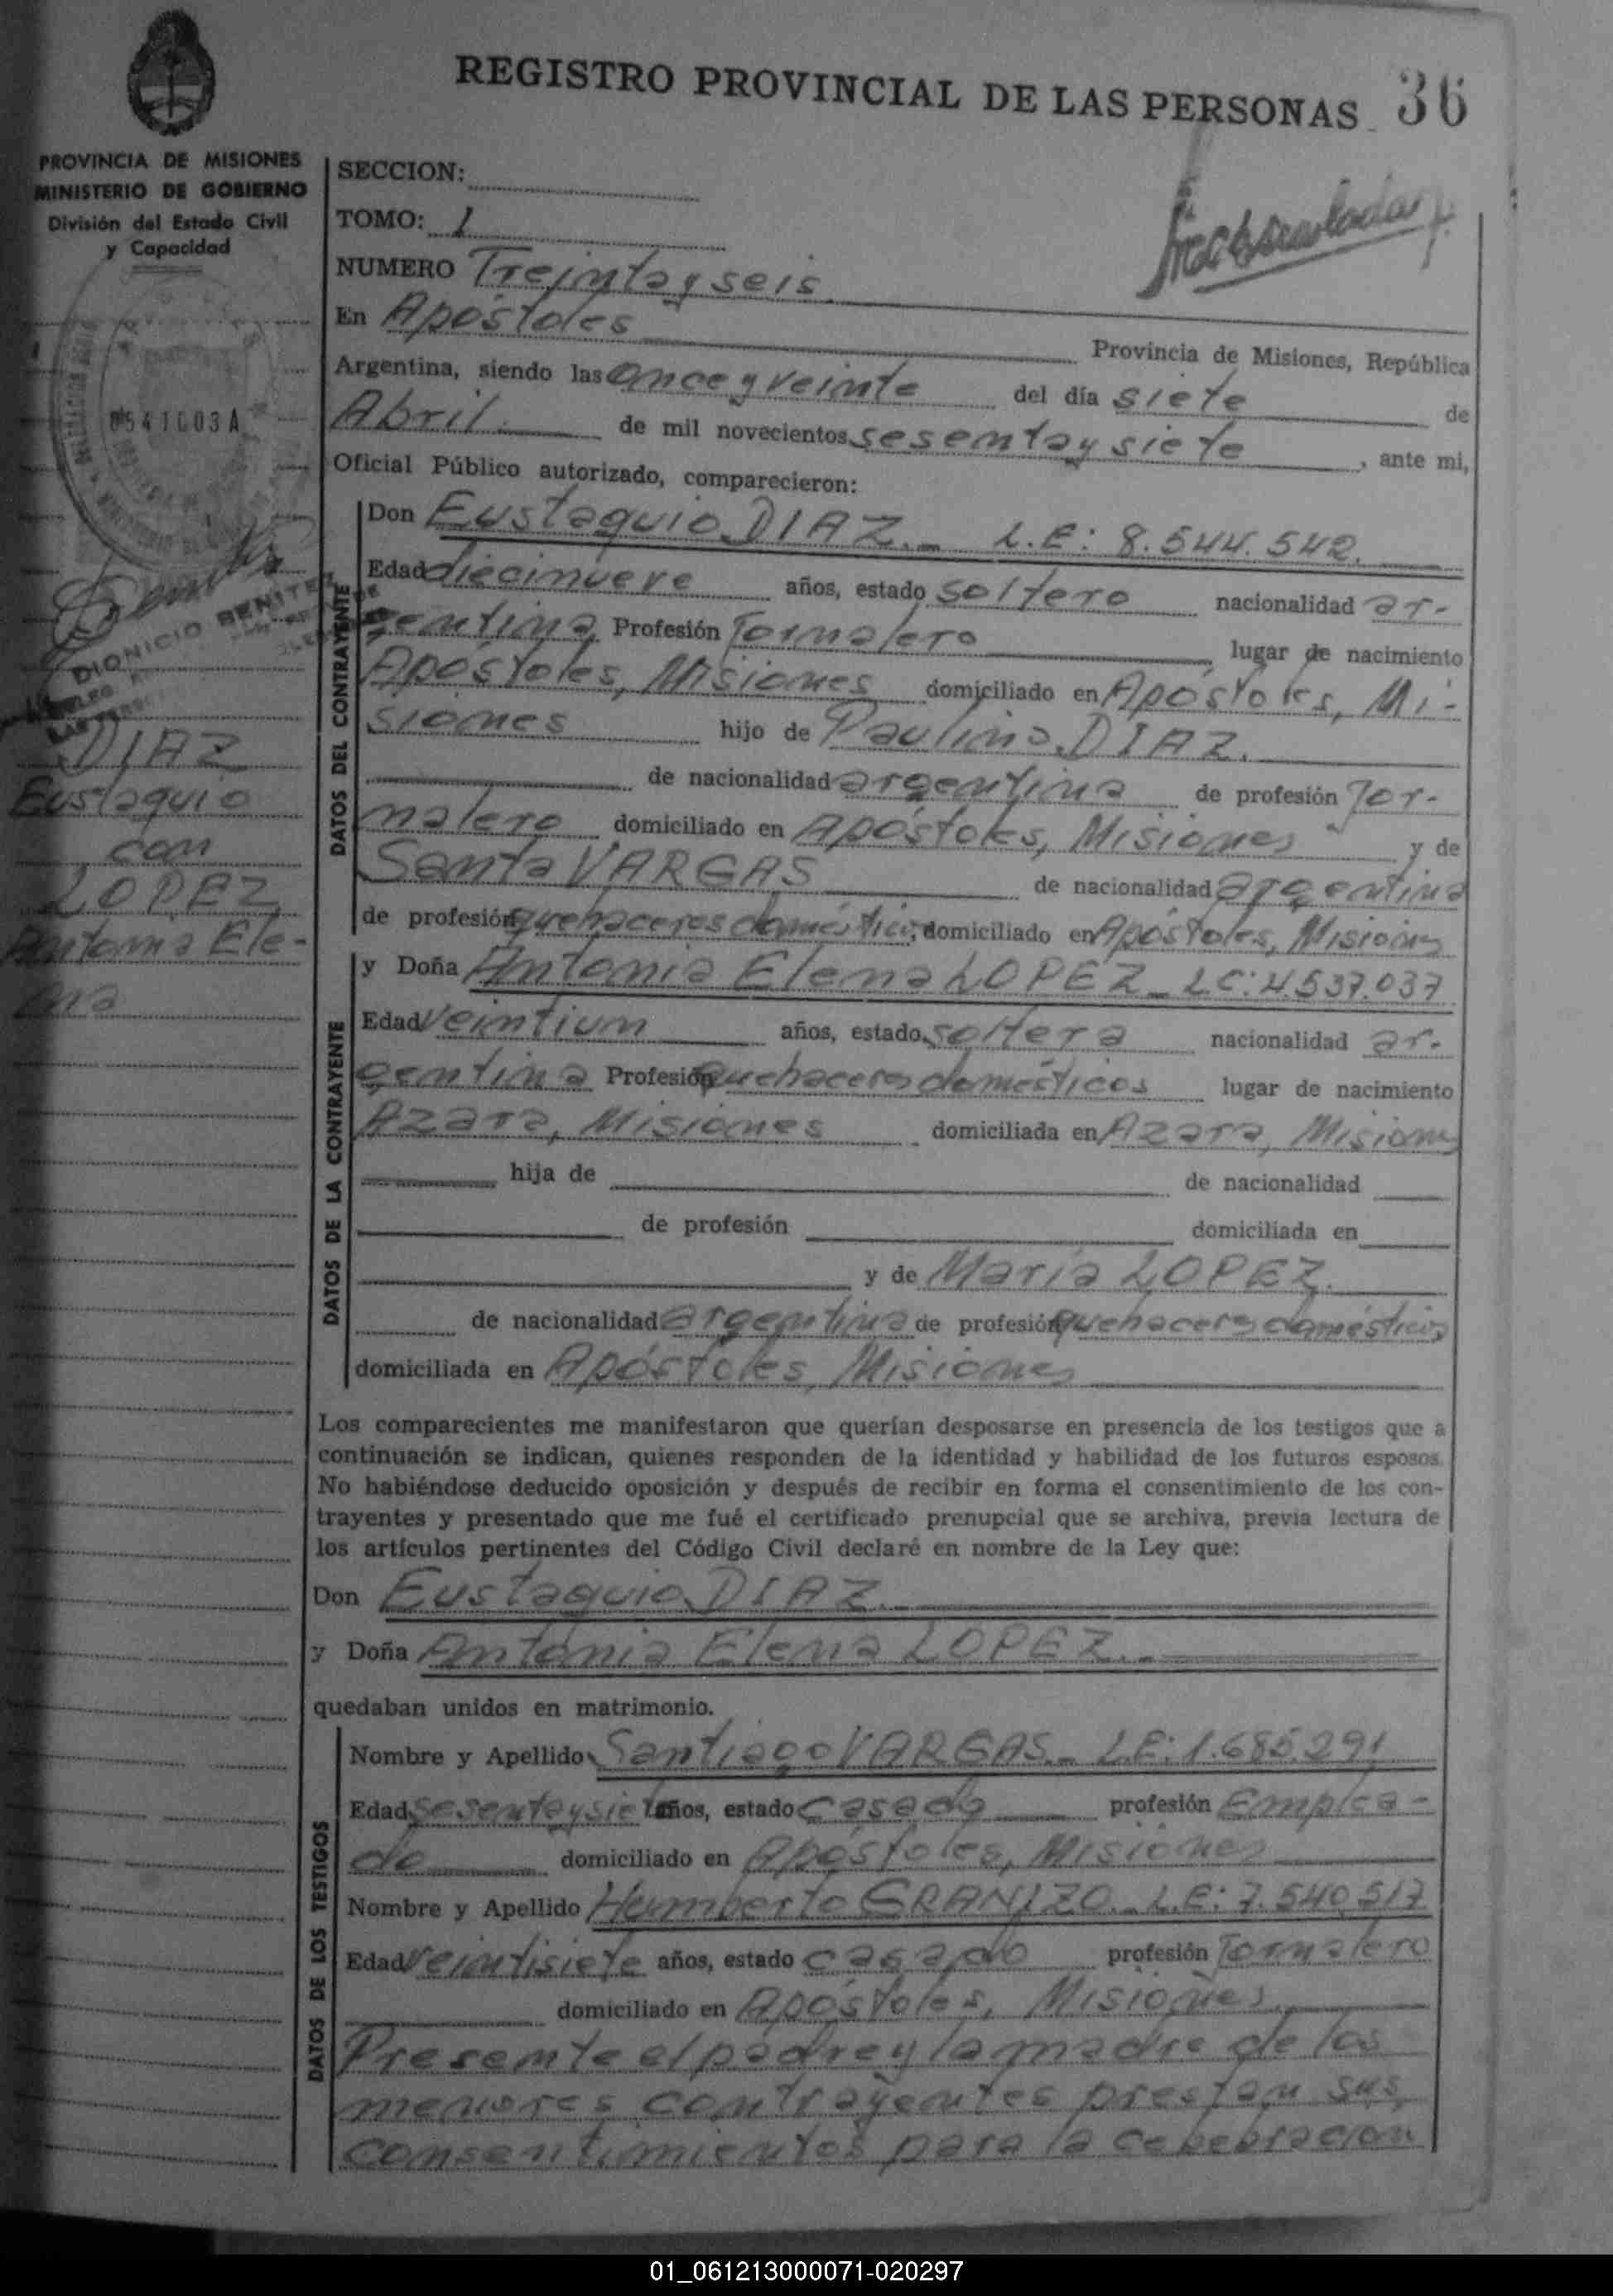 REGISTRO PROVINCIAL DE LAS PERSONAS 36
PROVINCIA DE MISIONES
MINISTERIO DE GOBIERNO
División del Estado Civil
y Capacidad
SECCION:
TOMO: 1
NUMERO Treinta y seis
En Apóstoles Provincia de Misiones, República
Argentina, siendo las once y veinte del día siete de
Abril de mil novecientos sesenta y siete, ante mi,
Oficial Público autorizado, comparecieron:
DIONICIO BENITEZ
DIAZ
Eustaquio
con
LOPEZ
Antonia Ele-
na
DATOS DEL CONTRAYENTE
Don Eustaquio DIAZ._ L.E: 8.544.542.
Edad diecinueve años, estado soltero nacionalidad ar-
gentina Profesión Jornalero lugar de nacimiento
Apóstoles, Misiones domiciliado en Apóstoles, Mi-
siones hijo de Paulino DIAZ.
de nacionalidad argentina de profesión Jor-
nalero domiciliado en Apóstoles, Misiones y de
Santa VARGAS de nacionalidad argentina
de profesión quehaceres domésticos, domiciliado en Apóstoles, Misiones
DATOS DE LA CONTRAYENTE
y Doña Antonia Elena LOPEZ_ LC: 4.537.037
Edad veintium años, estado soltera nacionalidad ar-
gentina Profesión quehaceres domésticos lugar de nacimiento
Azara, Misiones domiciliada en Azara, Misiones
hija de de nacionalidad
de profesión domiciliada en
y de María LOPEZ.
de nacionalidad argentina de profesión quehaceres domésticos
domiciliada en Apóstoles, Misiones
Los comparecientes me manifestaron que querían desposarse en presencia de los testigos que a
continuación se indican, quienes responden de la identidad y habilidad de los futuros esposos.
No habiéndose deducido oposición y después de recibir en forma el consentimiento de los con-
trayentes y presentado que me fué el certificado prenupcial que se archiva, previa lectura de
los artículos pertinentes del Código Civil declaré en nombre de la Ley que:
Don Eustaquio DIAZ.
y Doña Antonia Elena LOPEZ._
quedaban unidos en matrimonio.
DATOS DE LOS TESTIGOS
Nombre y Apellido Santiago VARGAS._ L.E: 1.685.291
Edad sesenta y siete años, estado casado profesión Emplea-
do domiciliado en Apóstoles, Misiones
Nombre y Apellido Humberto GRANIZO._ L.E: 7.540.517
Edad veintisiete años, estado casado profesión Jornalero
domiciliado en Apóstoles, Misiones
Presente el padre y la madre de los
menores contrayentes prestan sus
consentimientos para la cebebracion
01_061213000071-020297